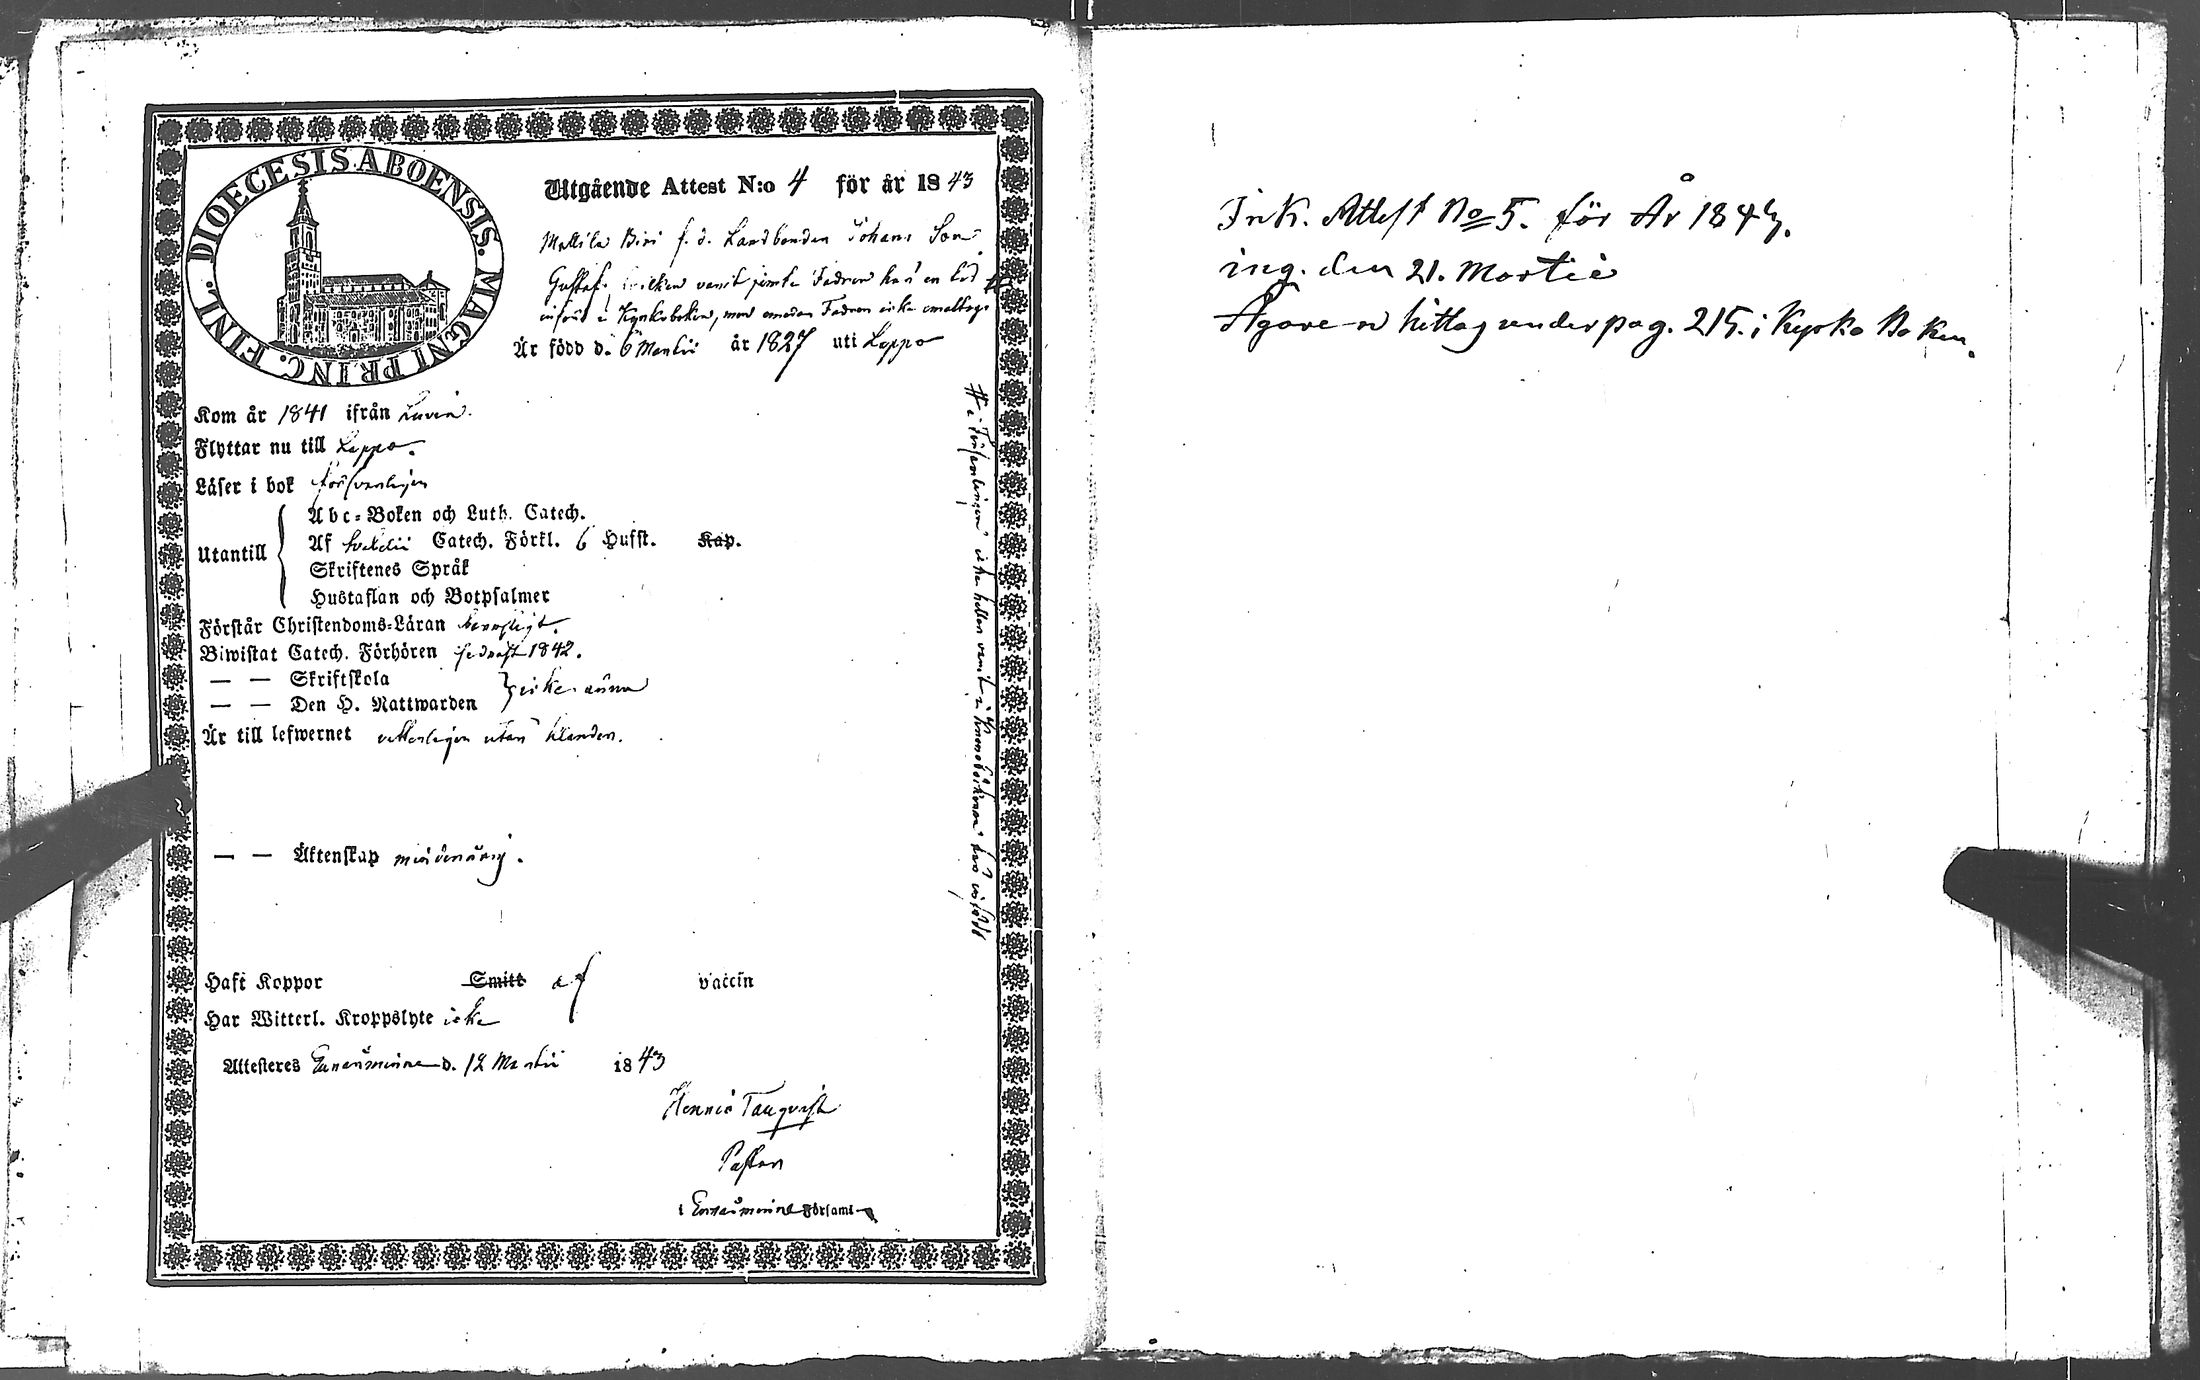 DIOECESIS ABOENSIS. MAGNI PRINC. FINL.
Utgående Attest N:o 4 för år 1843
Mattila Biri f. d. Landbonden Johans Son
Gustaf, hvilken varit jemte Fadren här en tid #
införd i Kyrkoboken, men emedan Fadren icke emottogs
Är född d. 6 Martii år 1827 uti Loppo
Kom år 1841 ifrån Luvia.
Flyttar nu till Loppo.
Läser i bok försvarligen
Utantill
Abc-Boken och Luth. Catech.
Af Svebelii Catech. Förkl. 6 Hufst. Kap.
Skriftenes Språk
Hustaflan och Botpsalmer
Förstår Christendoms-Läran
Biwistat Catech. Förhören sednast 1842.
— — Skriftskola
— — Den H. Nattwarden } icke ännu
Är till lefwernet veterligen utan klander.
— — Äktenskap minderårig.
# i Församlingen icke heller varit i Mantalsböckerna här införd
Haft Koppor Smitt af vaccin
Har Witterl. Kroppslyte icke
Attesteras d. 12 Martii 1843
Henric Tanqvist
Pastor
i Församl
Ink. Attest No 5. för År 1843.
ing. den 21. Martii
Ägaren hittas under pag. 215. i Kyrko Boken.